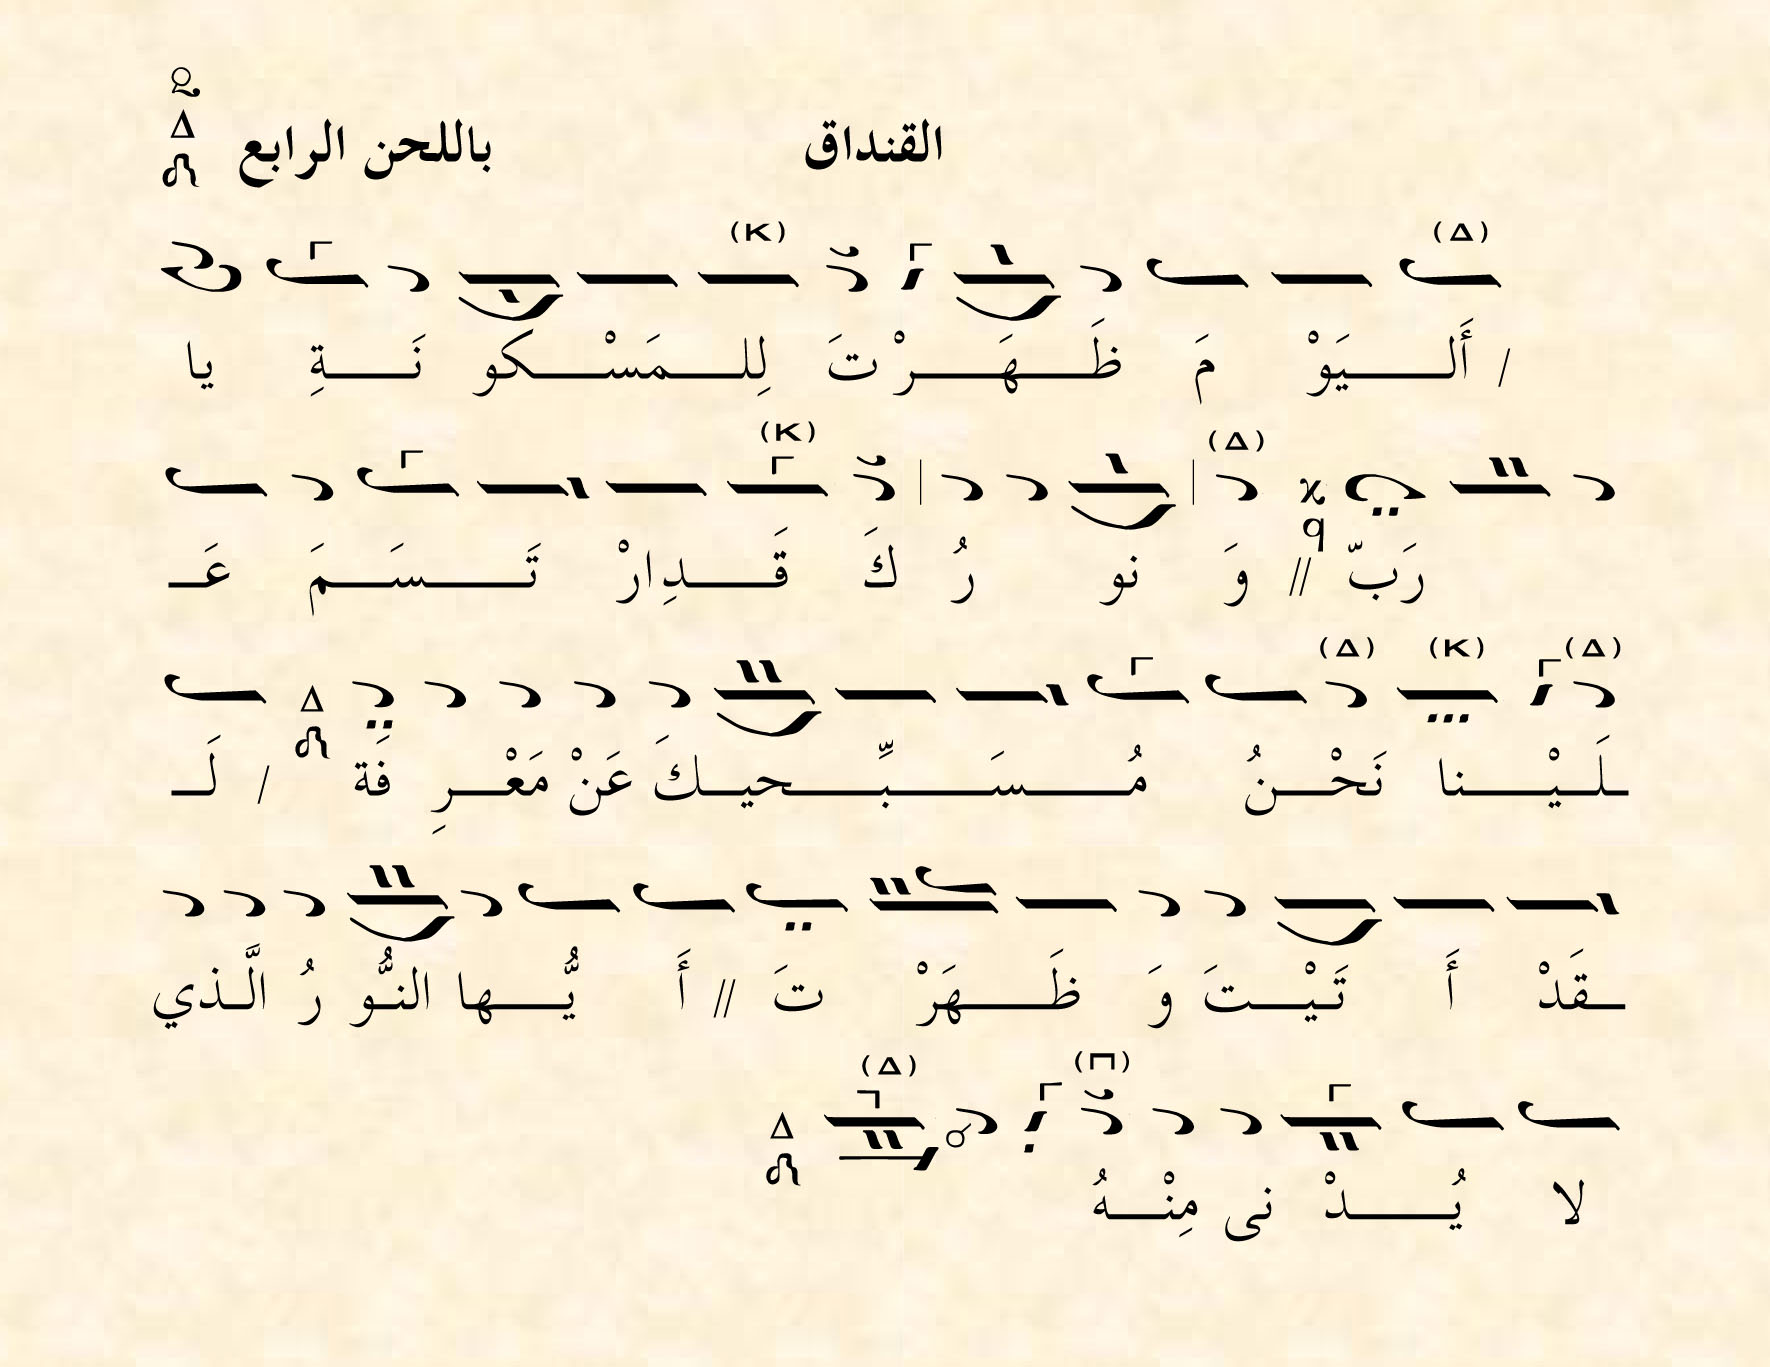 القنداق باللحن الرابع
/ أَلـــيَوْ مَ ظَـــهَـــرْ تَ لِلـــمَسْـــكو نَـــةِ يا
رَبّ // وَ نو رُ كَ قَـــدِارْ تَـــسَـــمَ عَـ
ـلَـيْـــنا نَحْـــنُ مُـــسَـــبِّـــحيـكَ عَنْ مَعْـــرِ فَة / لَـ
ـقَدْ أَ تَيْـــتَ وَ ظَـــهَرْ تَ // أَ يُّـــها النُّو رُ الَّـذي
لا يُـــدْ نى مِنْـــهُ